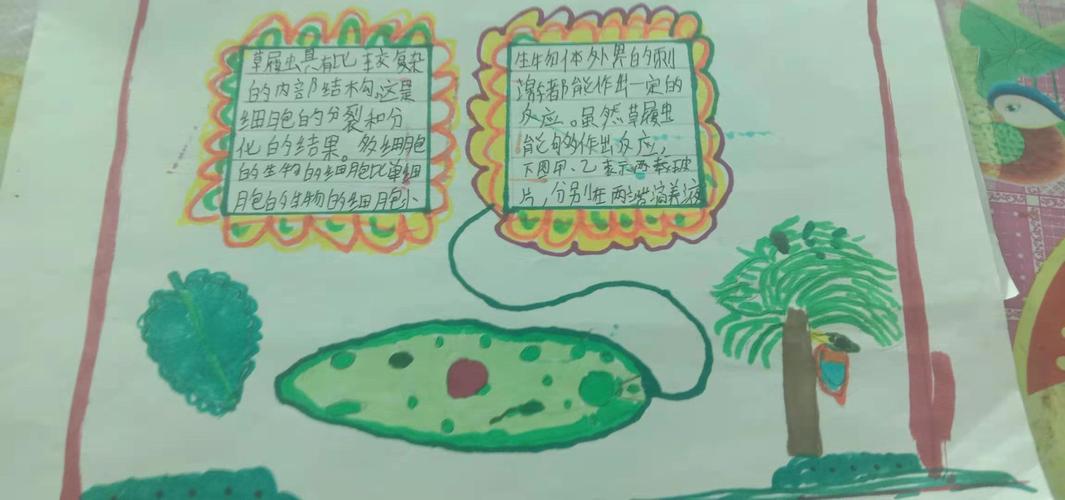 草履虫具有比较复杂
的内部结构。这是
细胞的分裂和分
化的结果。多细胞
的生物的细胞比单细
胞的生物的细胞小
生物体外界的刺
激都能作出一定的
反应。虽然草履虫
能够作出反应,
下图甲、乙表示两载玻
片,分别在两端滴养液